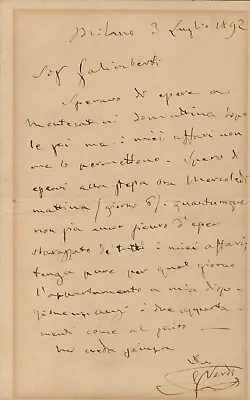 Milano 3 Luglio 1892
Sigr Galimberti
Speravo di essere a
Montecatini domattina dopo
le sei ma i miei affari non
me lo permettono. Spero di
esservi alla stessa ora Mercoledì
mattina (giorno 6). quantunque
non sia sicuro d'esser
sbarazzato di tutti i miei affari,
tenga pure per quel giorno
l'appartamento a mia dispo-
sizione, anzi i due apparta-
menti come al solito —
Mi creda sempre
G Verdi